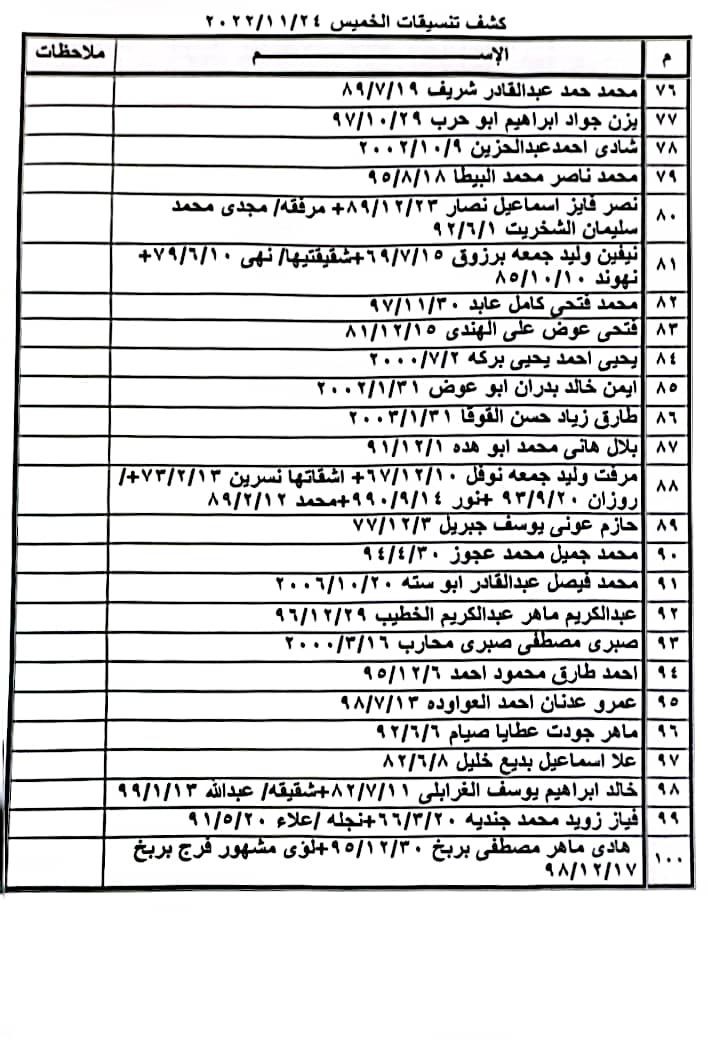 كشف تنسيقات الخميس ٢٠٢٢/١١/٢٤
م الإســـــــــم ملاحظات
٧٦ محمد حمد عبدالقادر شريف ٨٩/٧/١٩
٧٧ يزن جواد ابراهيم ابو حرب ٩٧/١٠/٢٩
٧٨ شادى احمدعبدالحزين ٢٠٠٢/١٠/٩
٧٩ محمد ناصر محمد البيطا ٩٥/٨/١٨
٨٠ نصر فايز اسماعيل نصار ٨٩/١٢/٢٣+ مرفقه/ مجدى محمد
سليمان الشخريت ٩٢/٦/١
٨١ نيفين وليد جمعه برزوق ٦٩/٧/١٥+شقيقتيها/ نهى ٧٩/٦/١٠+
نهوند ٨٥/١٠/١٠
٨٢ محمد فتحى كامل عابد ٩٧/١١/٣٠
٨٣ فتحى عوض على الهندى ٨١/١٢/١٥
٨٤ يحيى احمد يحيى بركه ٢٠٠٠/٧/٢
٨٥ ايمن خالد بدران ابو عوض ٢٠٠٢/١/٣١
٨٦ طارق زياد حسن القوقا ٢٠٠٣/١/٣١
٨٧ بلال هانى محمد ابو هده ٩١/١٢/١
٨٨ مرفت وليد جمعه نوفل ٦٧/١٢/١٠+ اشقاتها نسرين ٧٣/٢/١٣+/
روزان ٩٣/٩/٢٠ +نور ٩٩٠/٩/١٤+محمد ٨٩/٢/١٢
٨٩ حازم عونى يوسف جبريل ٧٧/١٢/٣
٩٠ محمد جميل محمد عجوز ٩٤/٤/٣٠
٩١ محمد فيصل عبدالقادر ابو سته ٢٠٠٦/١٠/٢٠
٩٢ عبدالكريم ماهر عبدالكريم الخطيب ٩٦/١٢/٢٩
٩٣ صبرى مصطفى صبرى محارب ٢٠٠٠/٣/١٦
٩٤ احمد طارق محمود احمد ٩٥/١٢/٦
٩٥ عمرو عدنان احمد العواوده ٩٨/٧/١٣
٩٦ ماهر جودت عطايا صيام ٩٢/٦/٦
٩٧ علا اسماعيل بديع خليل ٨٢/٦/٨
٩٨ خالد ابراهيم يوسف الغرابلى ٨٢/٧/١١+شقيقه/ عبدالله ٩٩/١/١٣
٩٩ فياز زويد محمد جنديه ٦٦/٣/٢٠+نجله /علاء ٩١/٥/٢٠
١٠٠ هادى ماهر مصطفى بربخ ٩٥/١٢/٣٠+لؤى مشهور فرج بربخ
٩٨/١٢/١٧